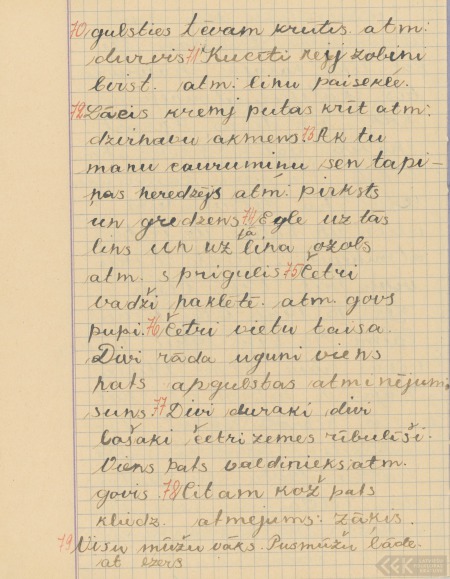 70 gulsties tēvam krutis. atm:
durvis 71 Kucēti rejj zobini
birst. atm: linu paisekle.
72 Lācis kremj putas krit atm:
dzirnavu akmens. 73 Ak tu
manu caurumiņu sen tapi-
ņas neredzējs atm: pirksts
un gredzens. 74 Egle uz tās
lins un uz tā lina ozols
atm. sprigulis 75 Četri
vadži paklētē. atm. govs
pupi. 76 Četri vietu taisa.
Divi rāda uguni viens
pats apgulstas atminējum,
suns. 77 Divi duraki divi
bašaki četri zemes ribuliši.
Viens pats valdinieks atm.
govis. 78 Citam kož pats
kliedz. atmejums: zāķis.
79 Visu mūžu vāks. Pusmūžu lāde.
at ezers